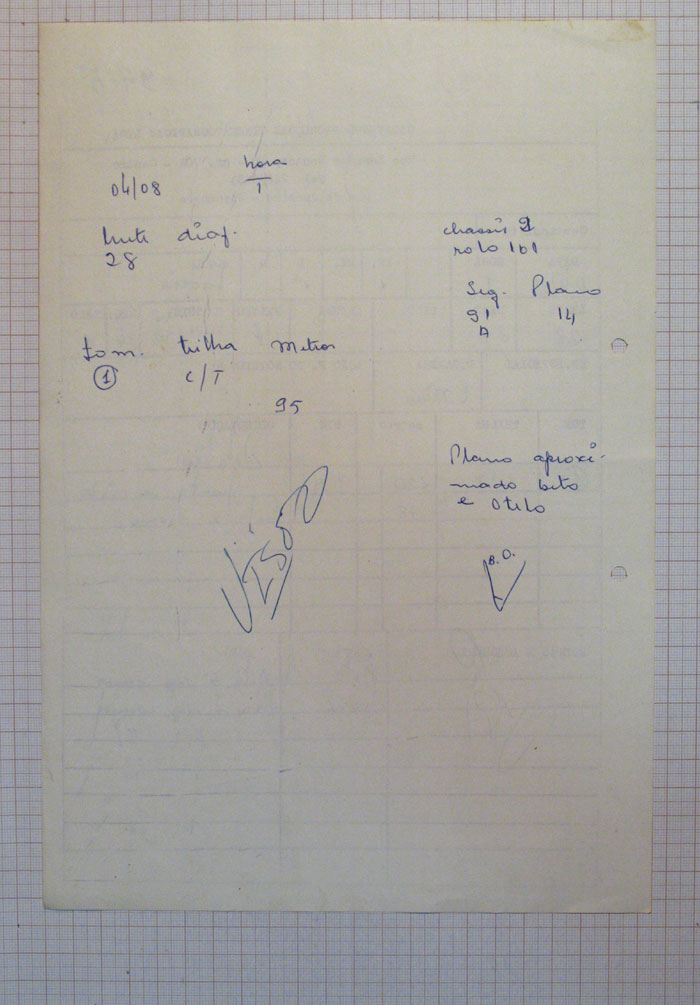 04/08
hora
T
diaf.
28
chassis 2
rolo 161
Seq. Plano
91 14
A
Tom. trilha Metros
1 C/T
95
Plano aproxi-
mado beto
e Otelo
B. O.
Visto